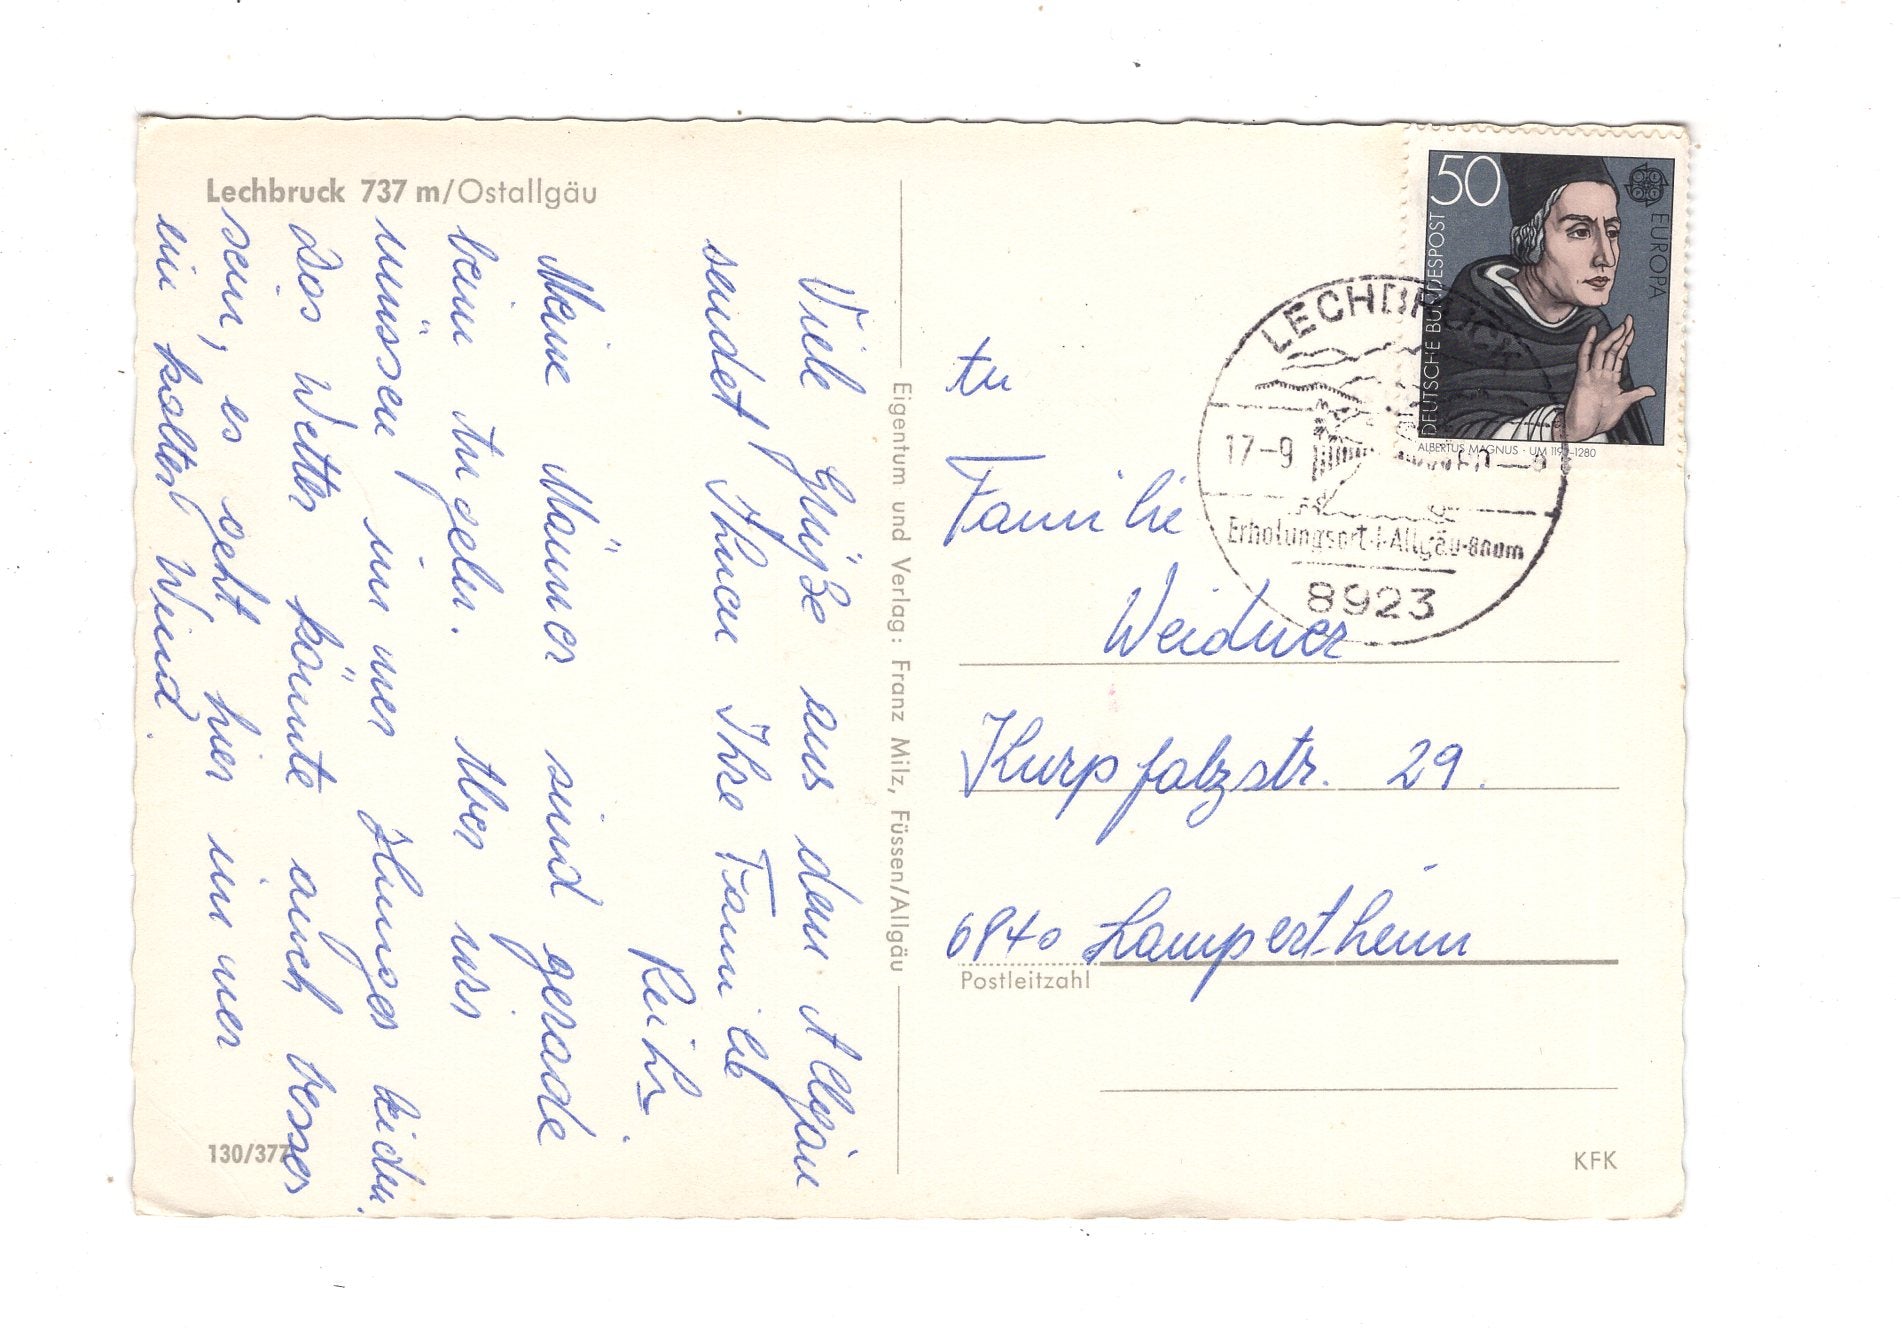 Lechbruck 737 m/Ostallgäu
Viele Grüße aus dem Allgäu
sendet Ihnen Ihre Familie
Reihr
Meine Männer sind gerade
beim Angeln. Aber wir
müssen immer Hunger leiden.
Das Wetter könnte auch besser
sein, es geht hier immer
ein kalter Wind.
130/377
Eigentum und Verlag: Franz Milz, Füssen/Allgäu
50
EUROPA
DEUTSCHE BUNDESPOST
ALBERTUS MAGNUS · UM 1193–1280
LECHBRUCK
17-9
Erholungsort · Allgäu
8923
An
Familie
Weidner
Kurpfalzstr. 29.
6840 Lampertheim
Postleitzahl
KFK